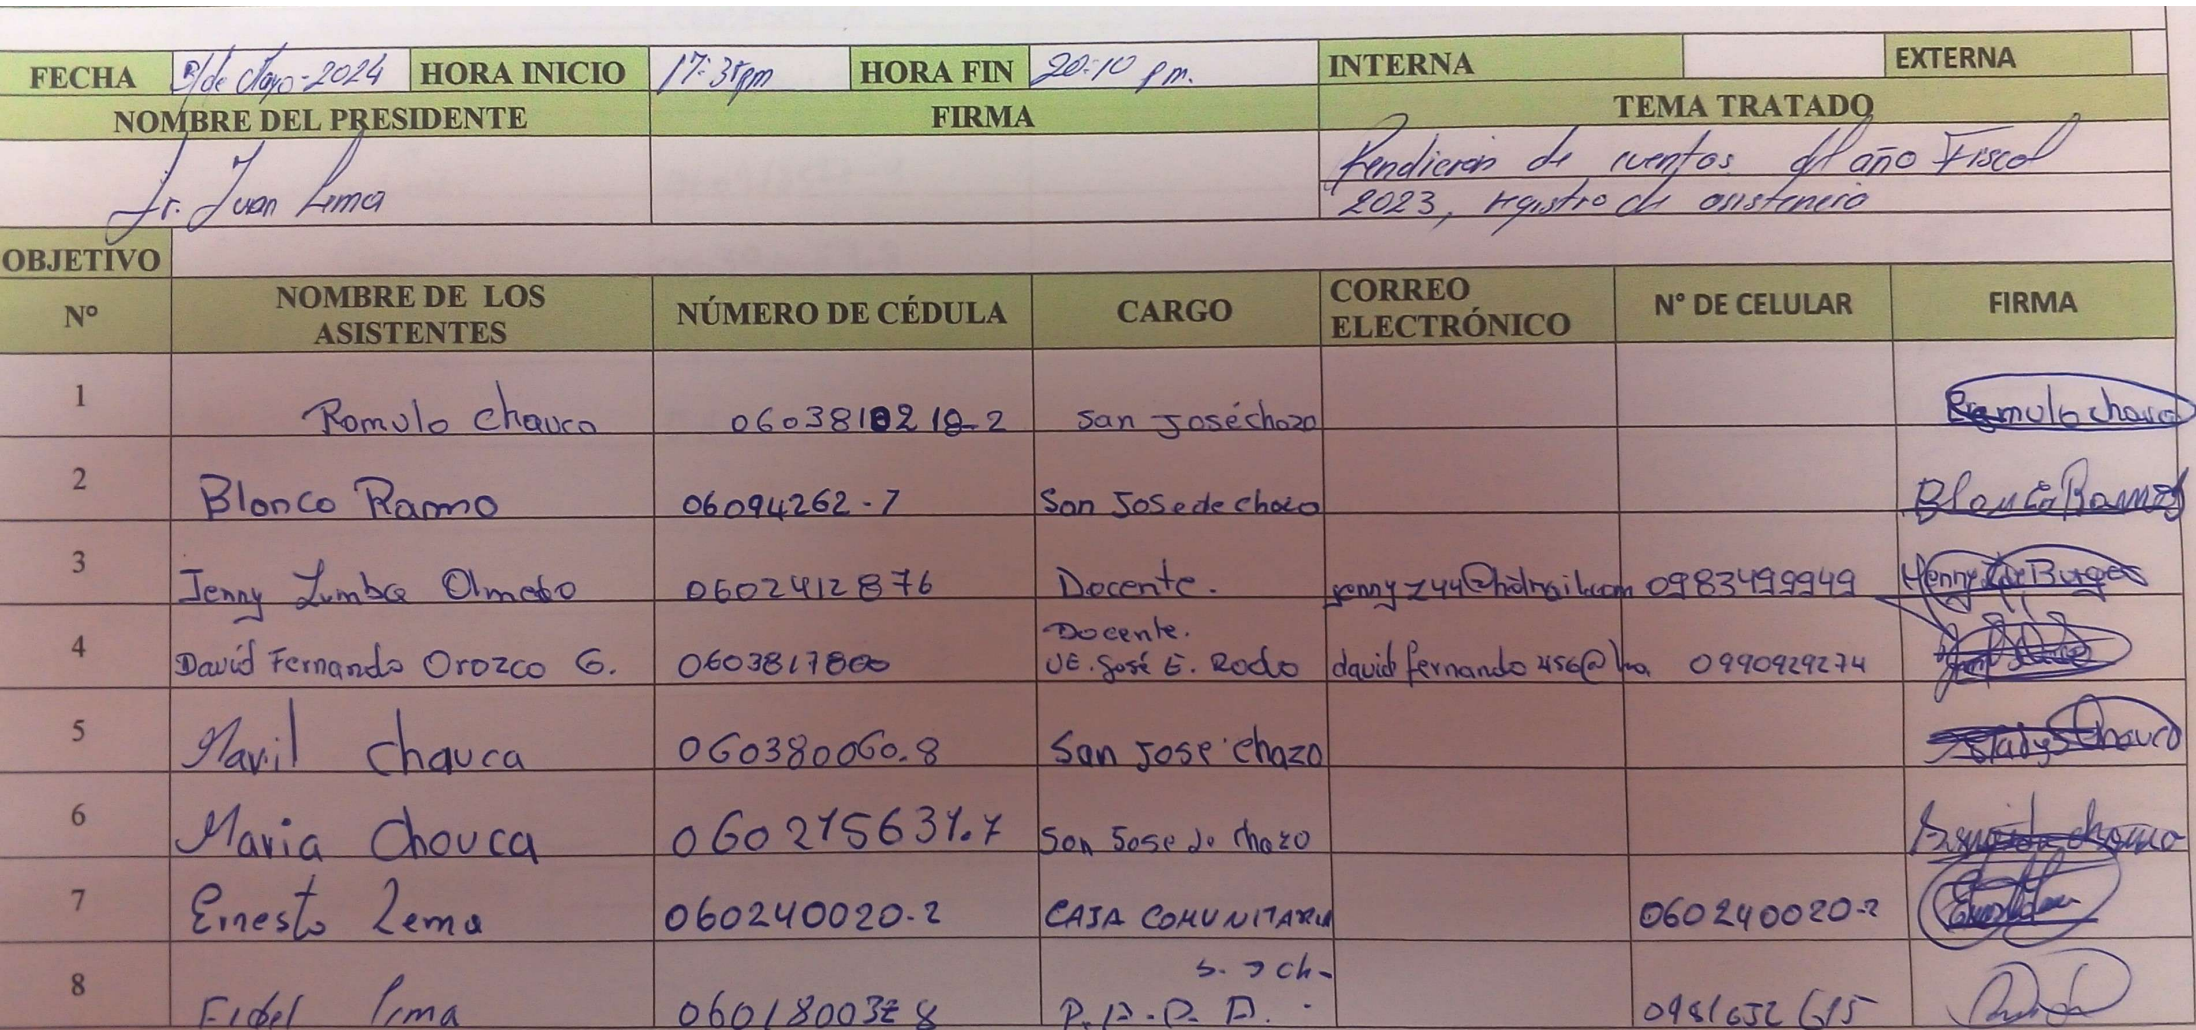 FECHA de Mayo-2024 HORA INICIO 17:35pm HORA FIN 20:10 pm. INTERNA EXTERNA
NOMBRE DEL PRESIDENTE FIRMA TEMA TRATADO
Sr. Juan Lema
Rendicion de cuentas del año Fiscal
2023, registro de asistencia
OBJETIVO
N° NOMBRE DE LOS ASISTENTES NÚMERO DE CÉDULA CARGO CORREO ELECTRÓNICO N° DE CELULAR FIRMA
1 Romulo Chauca San José chazo Romulo chauca
2 Blanco Ramo 06094262-7 San Jose de chazo Blanca Ramos
3 Jenny Zumba Olmedo 0602412876 Docente. 0983499949
Docente.
4 David Fernando Orozco G. 0603817800 UE. José E. Rodo david fernando 456@ 0990929274
5 chauca 060380060.8 San Jose chazo Chauca
6 Maria Chauca 060275631.7 San Jose de chazo chauca
7 Ernesto Lema 060240020-2 CAJA COMUNITARIA 060240020-2
S. J ch-
8 Fidel Lema P.A.P.A.